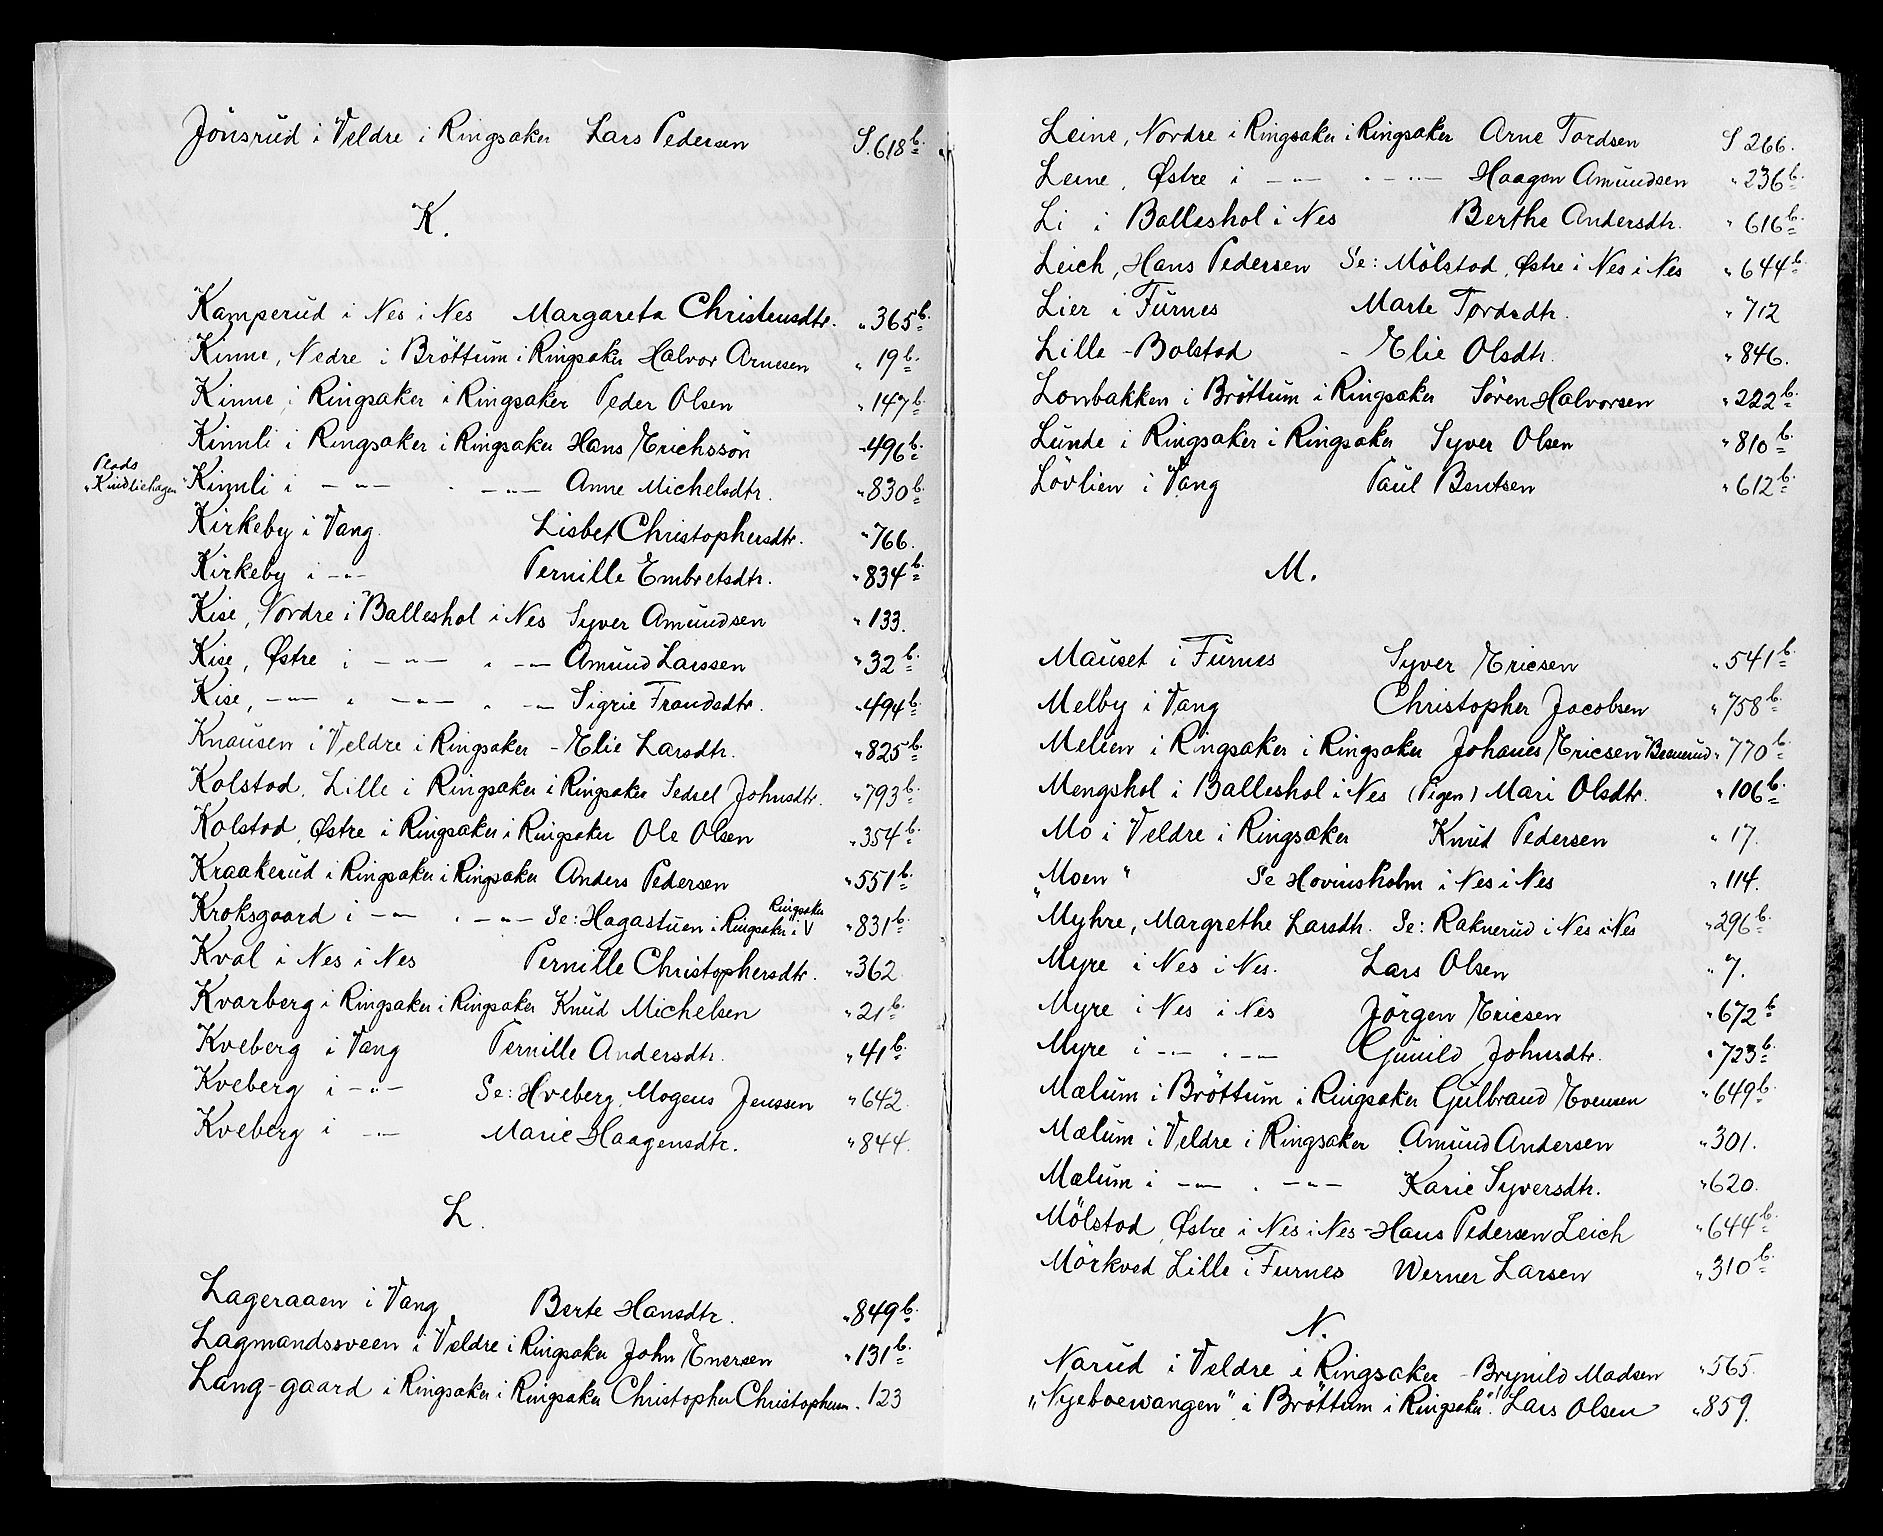 Jönsrud i Veldre i Ringsaker Lars Pedersen S. 618 b.
K.
Kamperud i Nes i Nes Margareta Christensdtr. " 365 b.
Kinne, Nedre i Bröttum i Ringsaker Halvor Arnesen " 19 b.
Kinne i Ringsaker i Ringsaker Peder Olsen " 147 b.
Kinnli i Ringsaker i Ringsaker Hans Erichssön " 496 b.
Plads "Kindliehagen" Kinnli i -"- . -"- Anne Michelsdtr. " 830 b.
Kirkeby i Vang. Lisbet Christophersdtr. " 766.
Kirkeby i -"- Pernille Embretsdtr. " 834 b.
Kise, Nordre i Balleshol i Nes Syver Amundsen " 133.
Kise, Østre i -"- . -"- Amund Larssen " 32 b.
Kise, -"- . -"- . -"- Sigrie Trondsdtr. " 494 b.
Knausen i Veldre i Ringsaker - Elie Larsdtr. " 825 b.
Kolstad, Lille i Ringsaker i Ringsaker Sedsel Johnsdtr. " 793 b.
Kolstad, Østre i Ringsaker i Ringsaker Ole Olsen " 354 b.
Kraakerud i Ringsaker i Ringsaker Anders Pedersen " 551 b.
Kroksgaard i -"- . -"- Se: Hagastuen i Ringsaker i Ringsaker " 831 b.
Kval i Nes i Nes Pernille Christophersdtr. " 362
Kvarberg i Ringsaker i Ringsaker Knud Michelsen " 21 b.
Kveberg i Vang Pernille Andersdtr. " 41 b.
Kveberg i -"- Se: Hveberg, Mogens Jenssen " 642.
Kveberg i -"- Marie Haagensdtr. " 844.
L.
Lageraaen i Vang Berte Hansdtr. " 849 b.
Lagmandssveen i Veldre i Ringsaker John Enersen " 131 b.
Lang-gaard i Ringsaker i Ringsaker Christopher Christophersen. 123
Leine, Nordre i Ringsaker i Ringsaker Arne Tordsen S 266.
Leine, Østre i -"- . -"- Haagen Amundsen " 236 b.
Li i Balleshol i Nes Berthe Andersdtr. " 616 b.
Leich, Hans Pedersen Se: Mölstad, Østre i Nes i Nes " 644 b.
Lier i Furnes Marte Tordsdtr. " 712
Lille-Bolstad - Elie Olsdtr. " 846.
Lonbakken i Bröttum i Ringsaker Sören Halvorsen " 222 b.
Lunde i Ringsaker i Ringsaker Syver Olsen " 810 b.
Lövlien i Vang Paul Bentsen " 612 b.
M.
Mauset i Furnes Syver Ericsen " 541 b.
Melby i Vang Christopher Jacobsen " 758 b.
Melien i Ringsaker i Ringsaker Johanes Ericsen " 770 b.
Mengshol i Balleshol i Nes (Pigen) Mari Olsdtr. " 106 b.
Mo i Veldre i Ringsaker Knud Pedersen " 17.
"Moen" Se Hovinsholm i Nes i Nes " 114.
Myhre, Margrethe Larsdtr. Se: Raknerud i Nes i Nes " 296 b.
Myre i Nes i Nes. Lars Olsen " 7.
Myre i Nes i Nes Jörgen Ericsen " 672 b.
Myre i -"- . -"- Gunild Johnsdtr. " 723 b.
Mælum i Bröttum i Ringsaker Gulbrand Evensen " 649 b.
Mælum i Veldre i Ringsaker Amund Andersen " 301.
Mælum i -"- . -"- Karie Syversdtr. " 620.
Mölstad, Østre i Nes i Nes - Hans Pedersen Leich " 644 b.
Mörkved Lille i Furnes Werner Larsen " 310 b.
N.
Narud i Veldre i Ringsaker - Brynild Madsen " 565.
"Nyeboewangen" i Bröttum i Ringsaker "! Lars Olsen " 859.